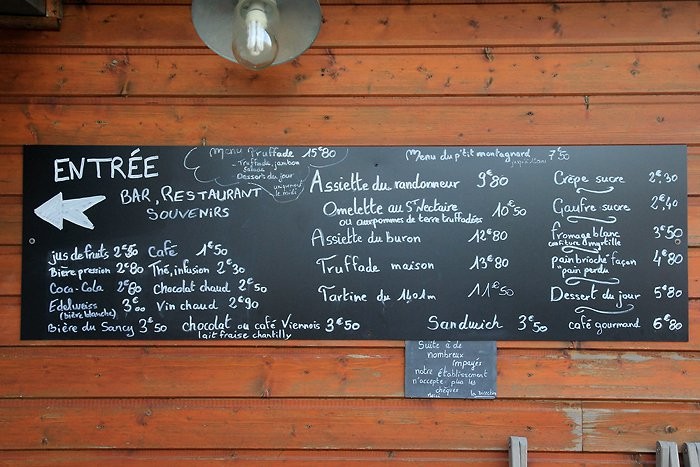 ENTRÉE
BAR, RESTAURANT
SOUVENIRS
Menu Truffade 15€80
Truffade, jambon
Salade
Dessert du jour
uniquement
le midi
Menu du p'tit montagnard 7€50
Assiette du randonneur 9€80
Omelette au St Nectaire
ou aux pommes de terre truffadées 10€50
Assiette du buron 12€80
Truffade maison 13€80
Tartine du 1401m 11€50
Crêpe sucre 2€30
Gaufre sucre 2€40
fromage blanc 3€50
confiture d'myrtille
pain brioché façon 4€80
"pain perdu"
Dessert du jour 5€80
café gourmand 6€80
jus de fruits 2€50 Café 1€50
Bière pression 2€80 Thé, infusion 2€30
Coca-Cola 2€80 Chocolat chaud 2€50
Edelweiss 3€00 Vin chaud 2€90
(bière blanche)
Bière du Sancy 3€50 chocolat ou café Viennois 3€50
lait fraise chantilly
Sandwich 3€50
Suite à de
nombreux
impayés
notre établissement
n'accepte plus les
chèques
Merci La Direction